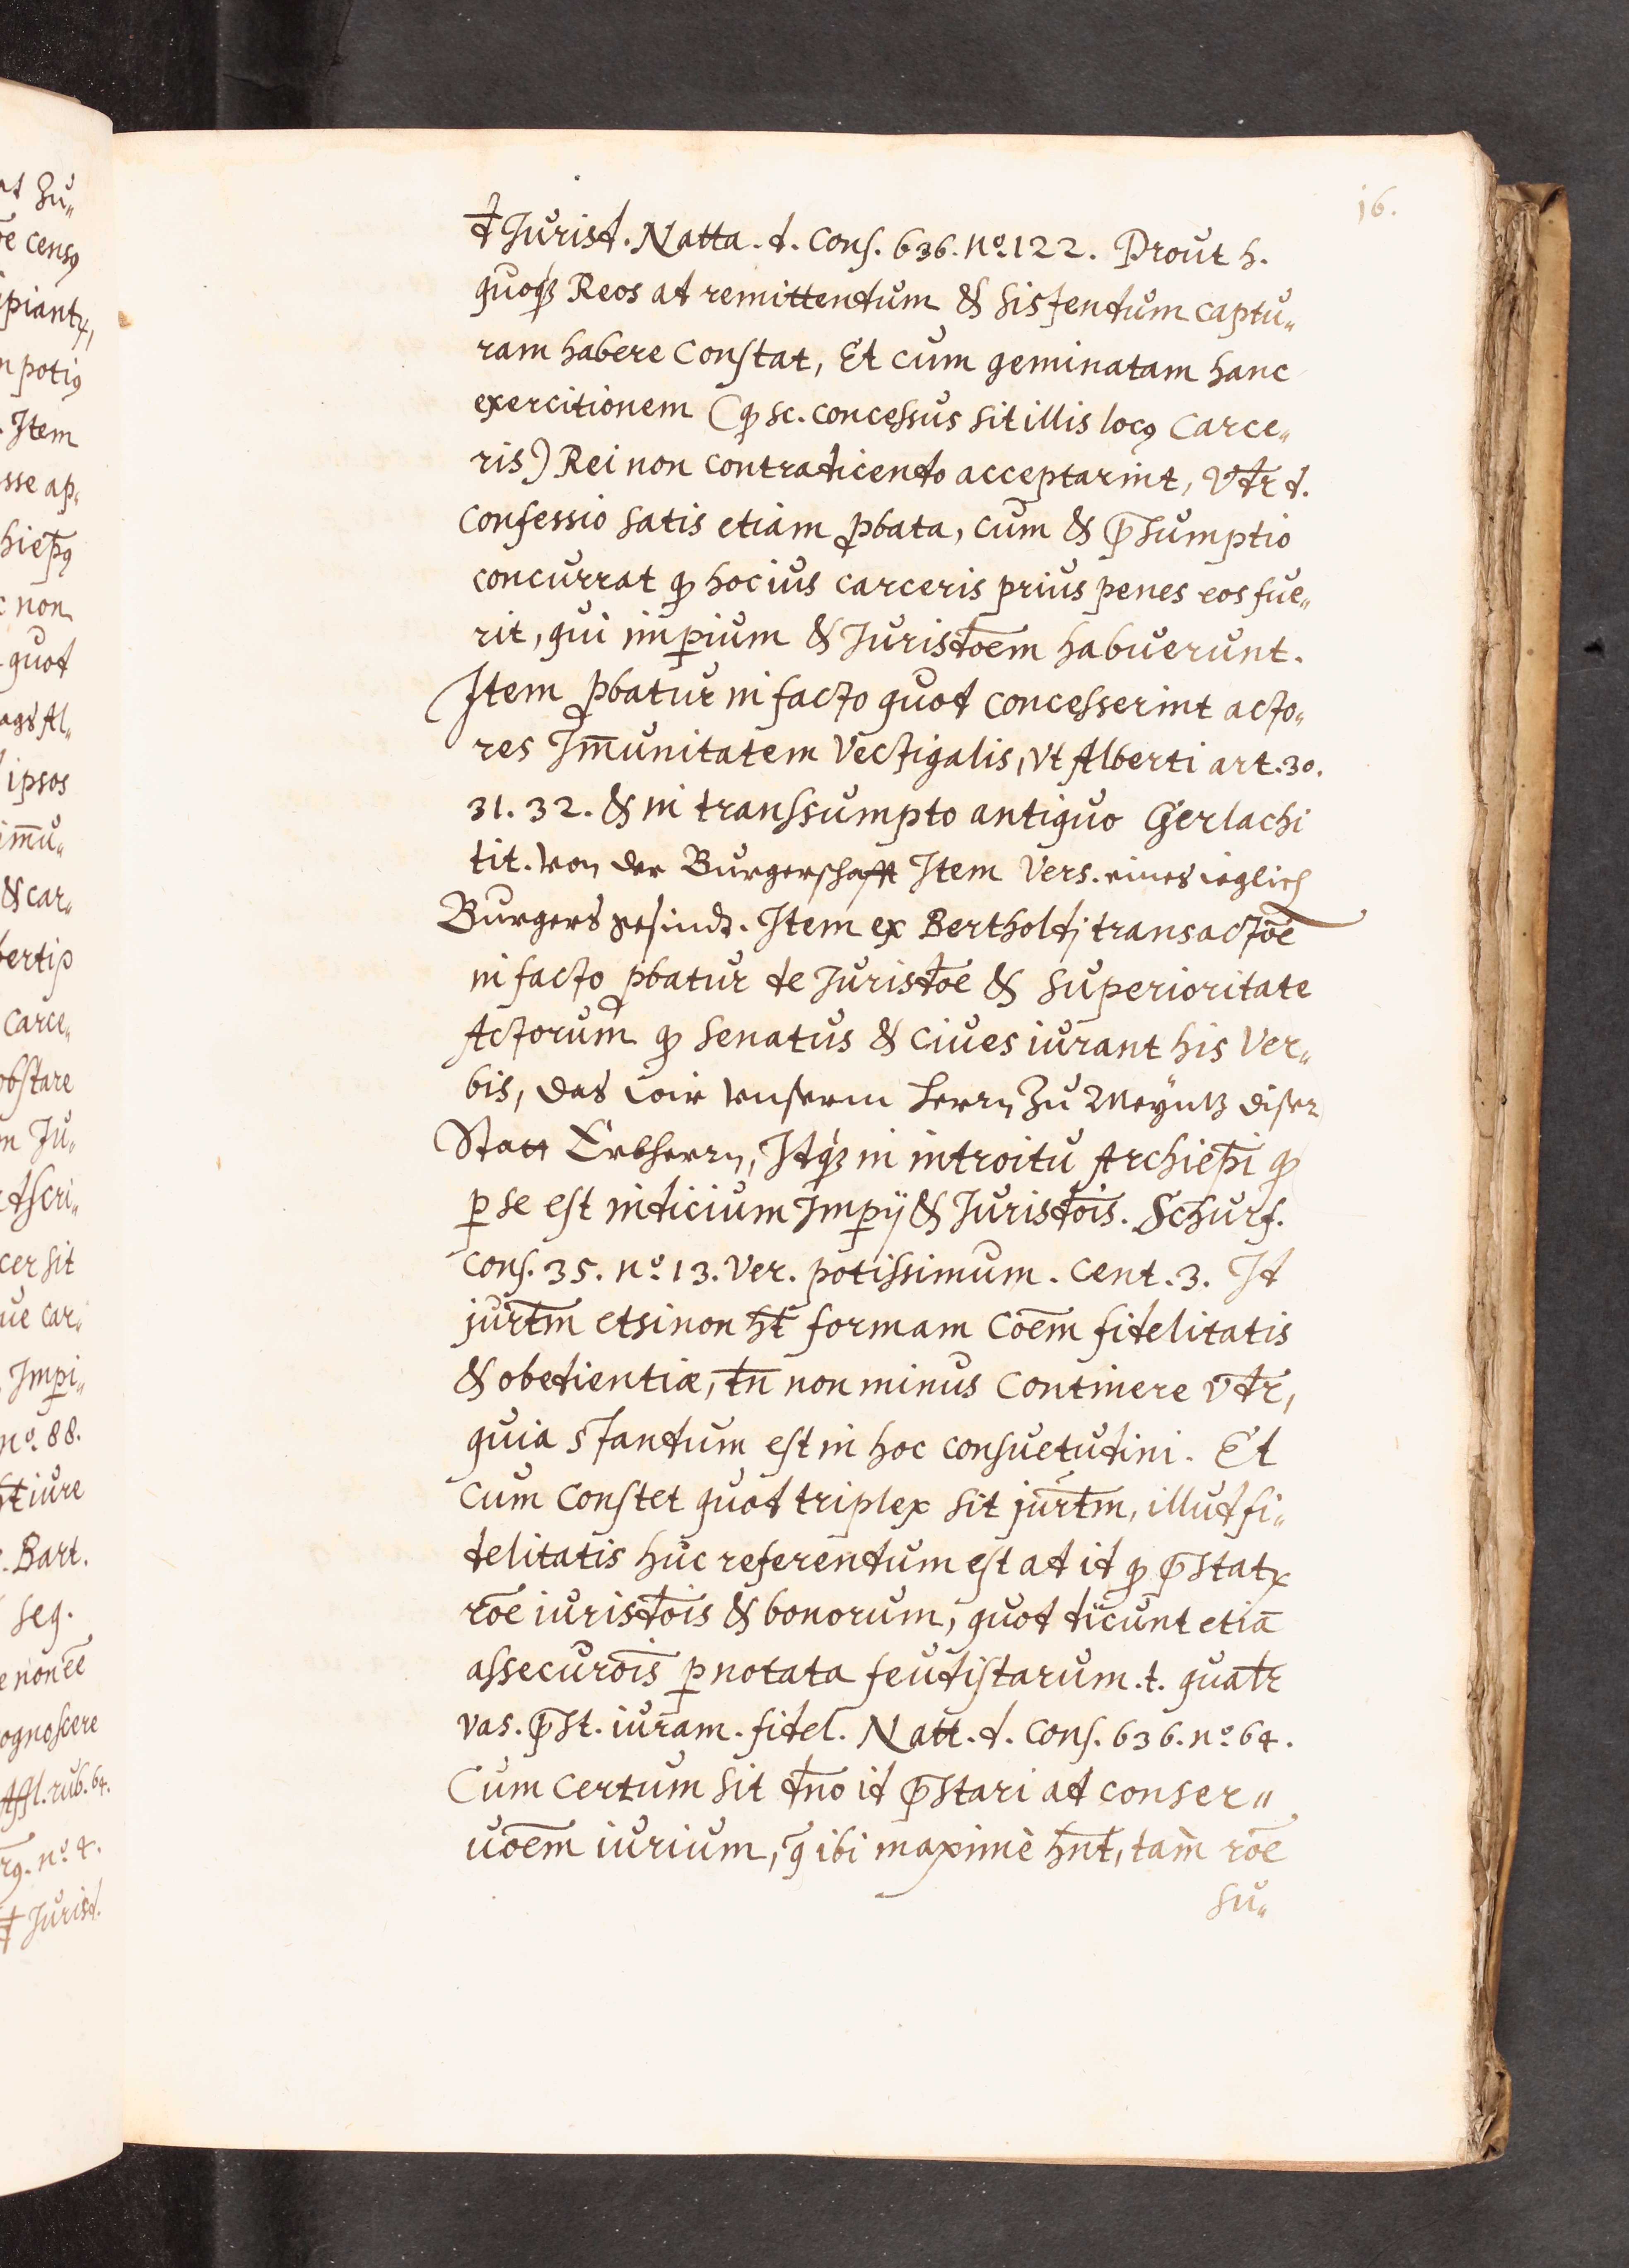 16.
et Jurisd. Natta. d. Cons. 636. nº. 122. Prout h.
quoqʒ Reos ad remittendum & sistendum captu„
ram habere Constat, Et cum geminatam hanc
exercitionem (qꝫ sc. concessus sit illis locꝰ Carce„
ris) Rei non contradicendo acceptarint, Vr̄ d.
Confessio satis etiam ꝓbata, cum & p̄sumptio
concurrat qꝫ hoc ius carceris prius penes eos fue„
rit, qui imꝑium & Jurisdōem habuerunt.
Item ꝓbatur in facto quod concesserint acto„
res Im̄unitatem Vectigalis, Vt Alberti art. 30.
31. 32. & in transsumpto antiquo Gerlachi
tit. von der Burgerschafft Item Vers. eines ieglich
Burgers gesindt. Item ex Bertholdj transactōe
in facto ꝓbatur de Jurisdōe & Superioritate
Actorum qꝫ Senatus & Ciues iurant his Ver„
bis, das wir vnserm herrn zu Meyntz diser
Statt Erbherrn, Idqʒ in introitu Archiep̄i qꝫ
ꝑ se est indicium Imꝑij & Jurisdōis. Schurf.
Cons. 35. nº. 13. Ver. potissimum. Cent. 3. Id
jurtm̄ etsi non ht̄ formam Cōem fidelitatis
& obedientiæ, tn̄ non minus Continere Vr̄,
quia standum est in hoc consuetudini. Et
Cum Constet quod triplex sit jurtm̄, illud fi„
delitatis huc referendum est ad id qꝫ p̄statr
rōe iurisdōis & bonorum, quod dicunt etiā
assecurōis ꝑ notata feudistarum. t. qualr̄
vas. p̄st. iuram. fidel. Natt. d. Cons. 636. nº 64.
Cum Certum sit dn̄o id p̄stari ad conser„
uōem iurium, q̄ ibi maximè hn̄t, tam rōe
su„